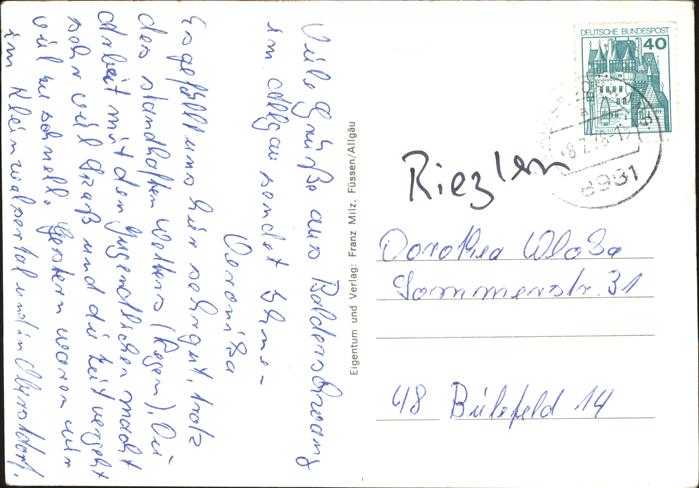 Viele Grüße aus Balderschwang
im Allgäu sendet Ihnen
Veronika
Es gefällt uns hier sehr gut, trotz
des standhaften Wetters (Regen). Die
Arbeit mit den Jugendlichen macht
sehr viel Spaß und die Zeit vergeht
viel zu schnell. Gestern waren wir
im Kleinwalsertal und in Oberstdorf.
Eigentum und Verlag: Franz Milz, Füssen/Allgäu
DEUTSCHE BUNDESPOST
40
8931
Riezlern
Dorothea
Sommerstr. 31
48 Bielefeld 14